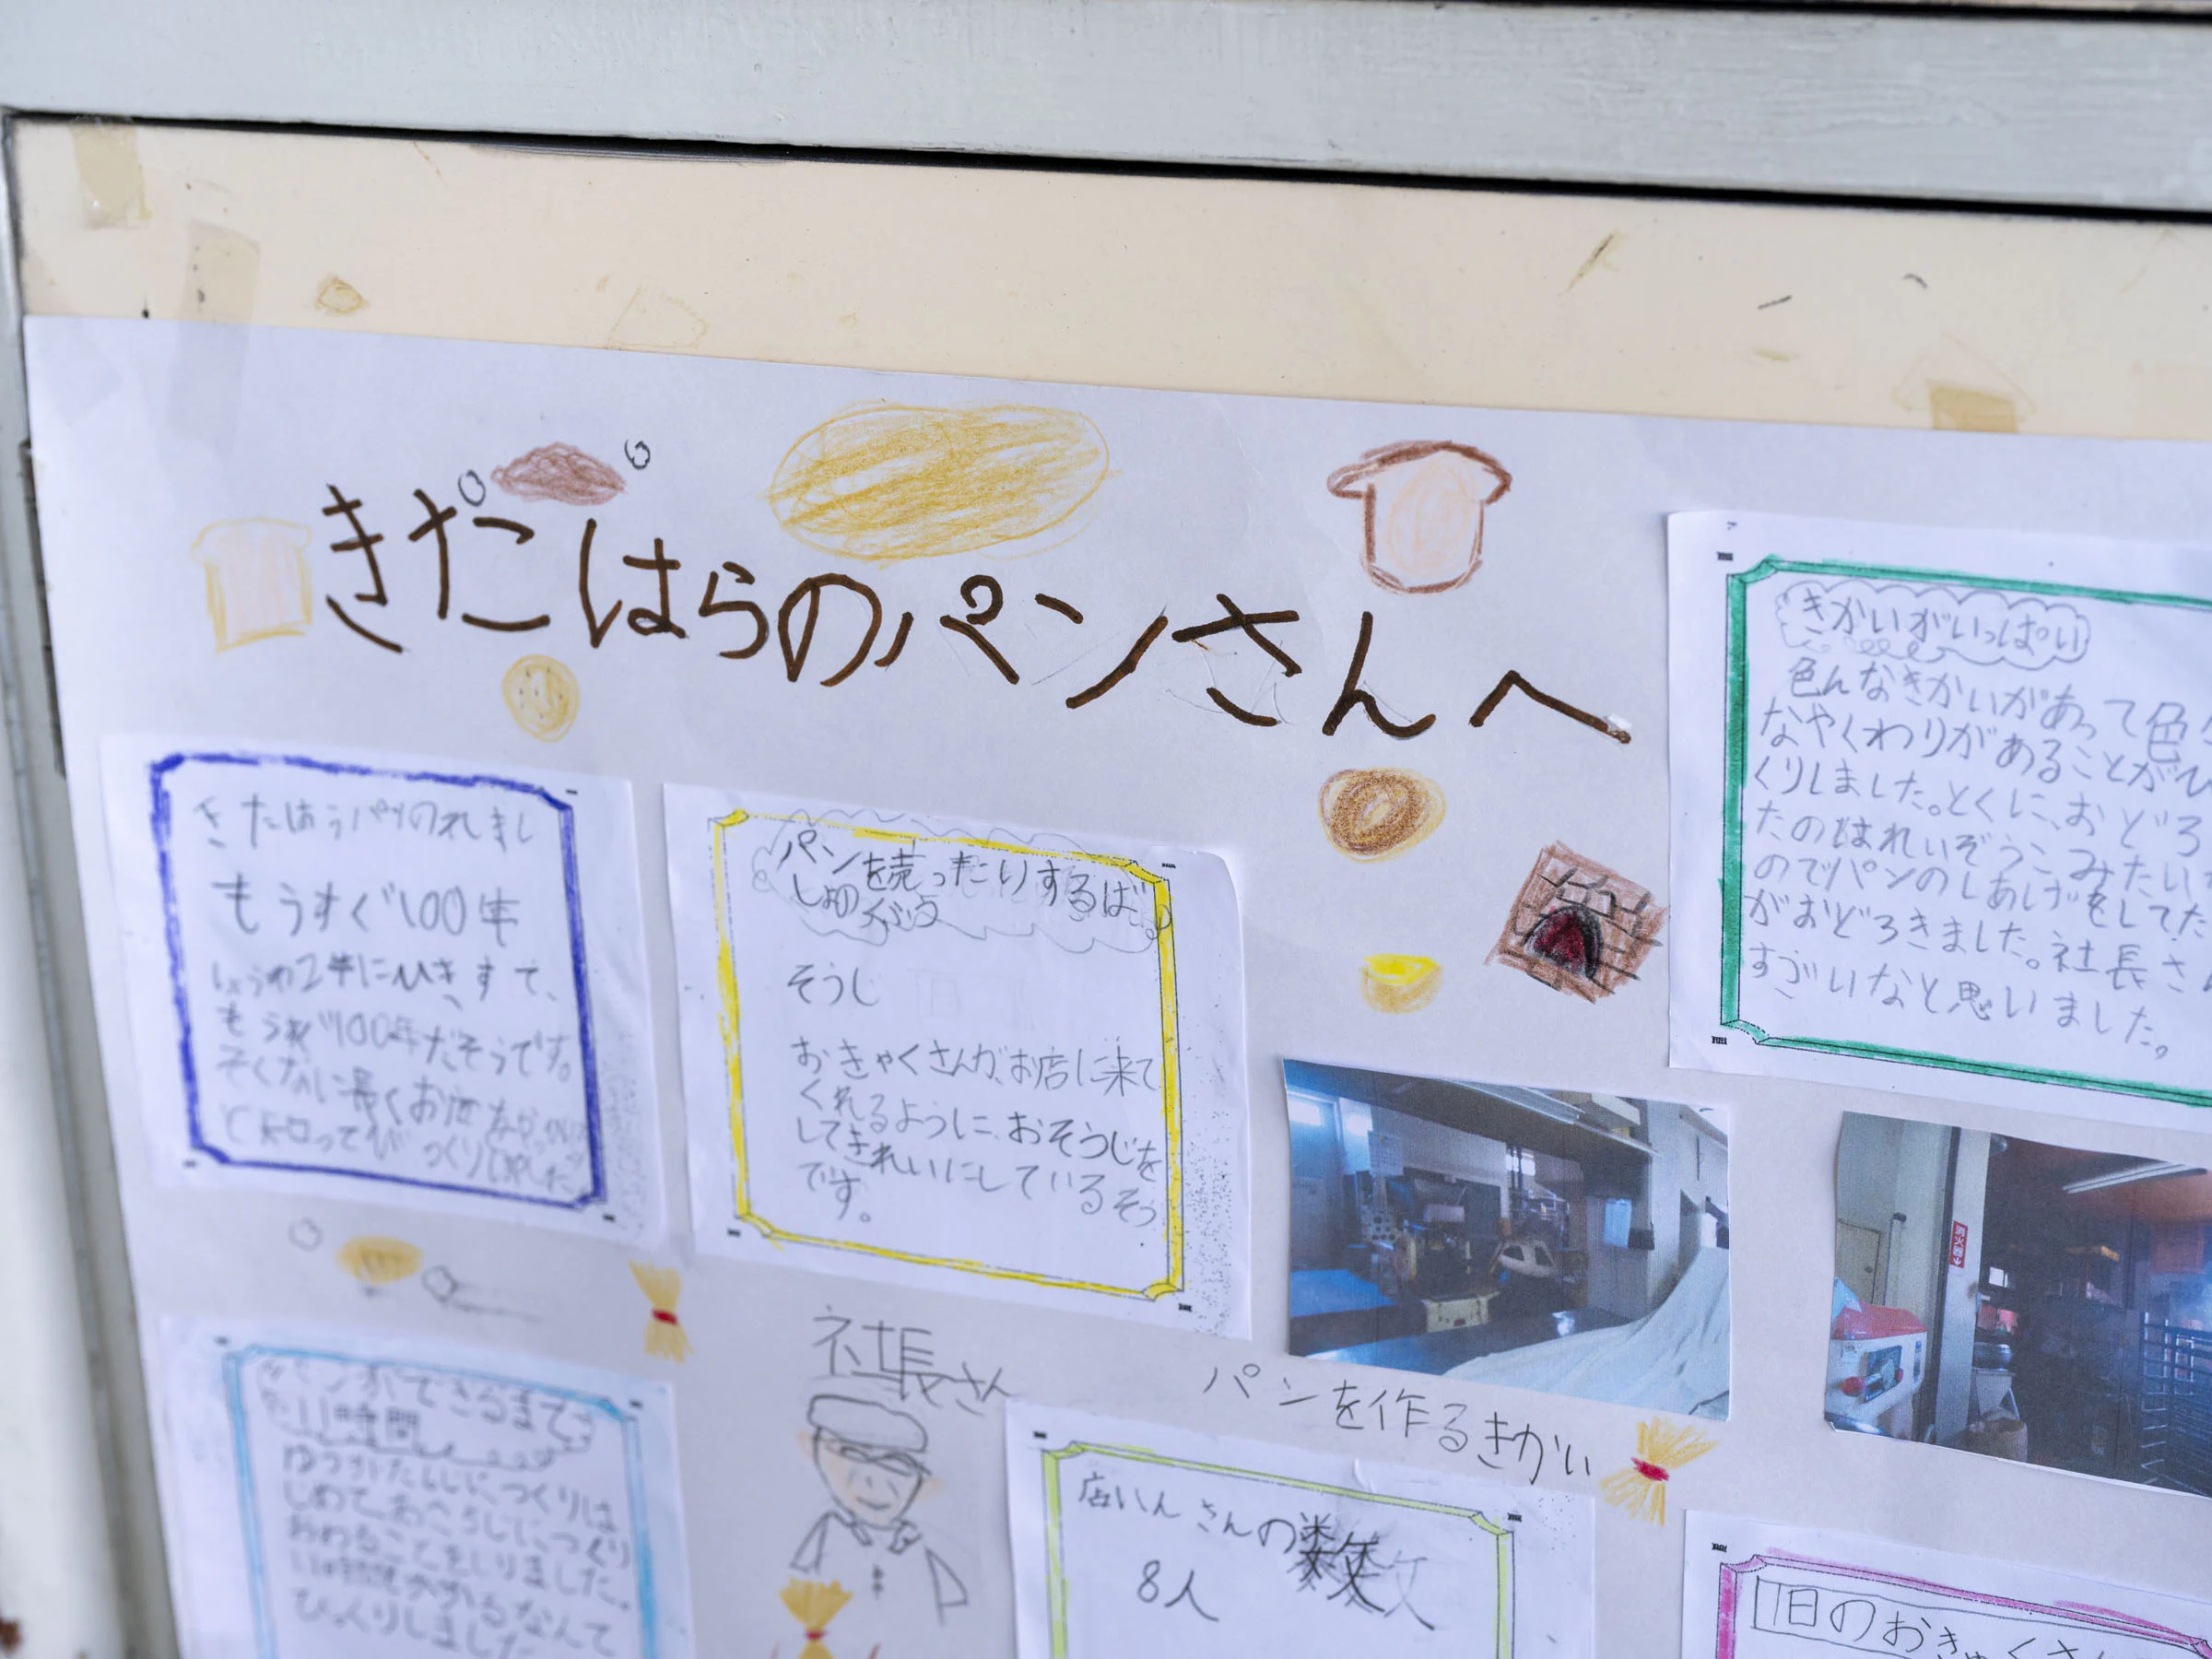 きたはらのパンさんへ
きたはらパンのれきし
もうすぐ100年
しょうわ2年にひらきすて、
もうすぐ100年だそうです。
そんなに長くお店が
と知ってびっくりしました。
パンを売ったりするばしょの
そうじ
おきゃくさんが、お店に来て
くれるように、おそうじを
してきれいにしているそう
です。
きかいがいっぱい
色んなきかいがあって色
なやくわりがあることがび
くりしました。とくに、おどろ
たのはれいぞうこみたい
のでパンのしあげをしてた
がおどろきました。社長さ
すごいなと思いました。
パンを作るきかい
社長さん
パンができるまで
11時間
ゆうがたんしに、つくりは
じめて、あさ5じに、つくり
おわることをしりました。
11時間もかかるなんて
びっくりしました
店いんさんの数
8人
1日のおきゃくさ